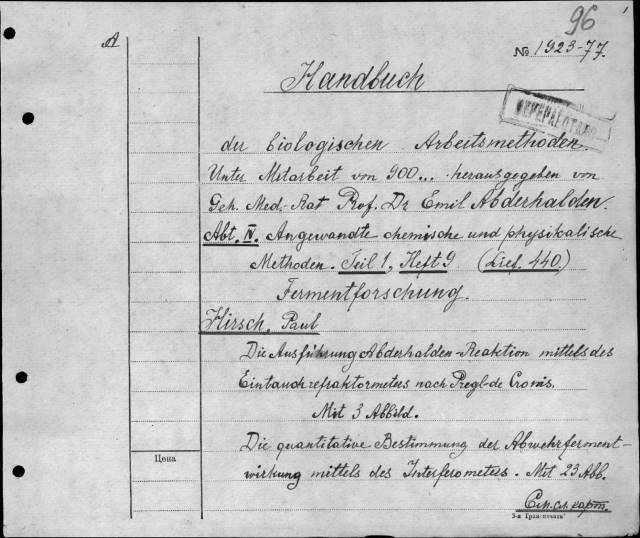 96
A
№ 1923-77.
Handbuch
ПЕРЕРАБОТАНО
der biologischen Arbeitsmethoden.
Unter Mitarbeit von 900... herausgegeben von
Geh. Med.-Rat Prof. Dr Emil Abderhalden.
Abt. IV. Angewandte chemische und physikalische
Methoden. Teil 1, Heft 9 (Lief. 440)
Fermentforschung.
Hirsch, Paul
Die Ausführung Abderhalden-Reaktion mittels des
Eintauchrefraktometers nach Pregl-de Cronis.
Mit 3 Abbild.
Die quantitative Bestimmung der Abwehrferment-
wirkung mittels des Interferometers. Mit 23 Abb.
Цена
См. сл. карт.